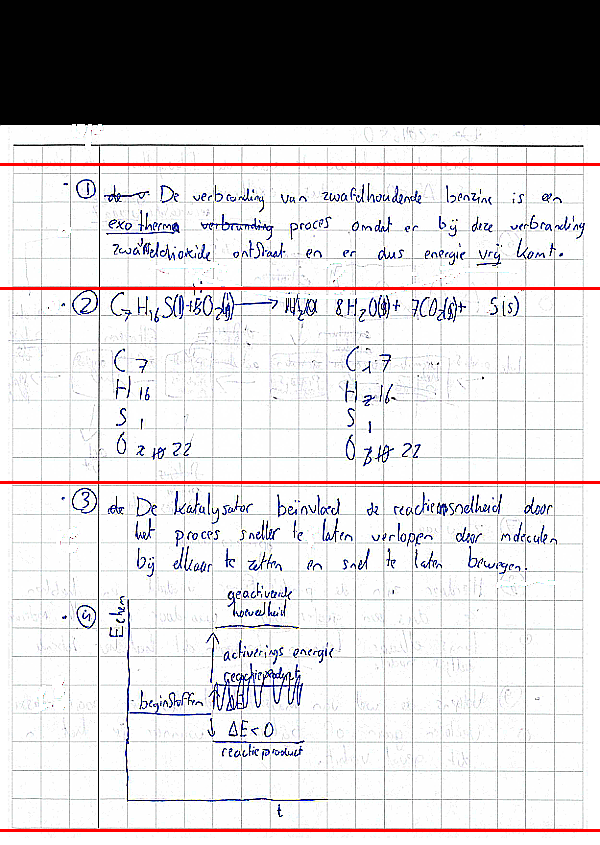 ① De verbranding van zwafelhoudende benzine is een
exotherma proces omdat er bij deze verbranding
zwafeldioxide ontstaat en er dus energie vrij komt.
② C₇H₁₆S(l)+ O₂(g) → 8H₂O(g)+ 7CO₂(g)+ S(s)
C 7 C 7
H 16 H 16
S 1 S 1
O 22 O 22
③ De katalysator beïnvloed de reactiesnelheid door
het proces sneller te laten verlopen door moleculen
bij elkaar te zetten en snel te laten bewegen.
④ Echem
geactiveerde
toestand
activerings energie
beginstoffen
ΔE < 0
reactieproduct
t